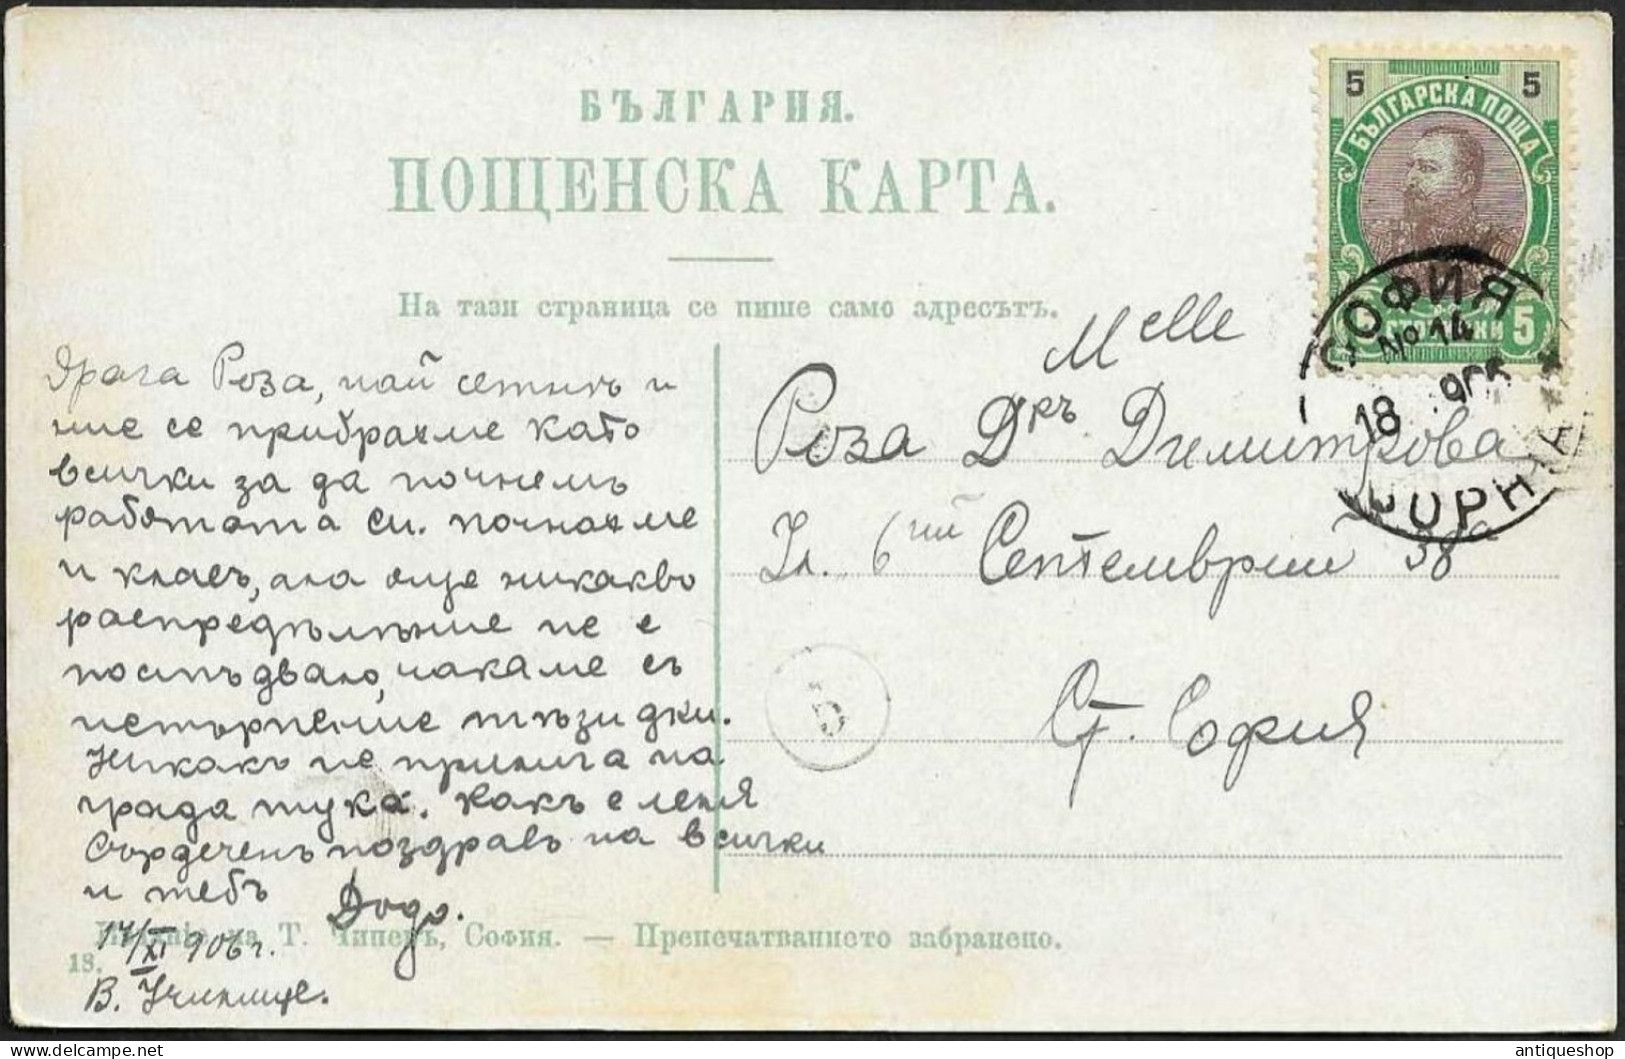 БЪЛГАРИЯ.
ПОЩЕНСКА КАРТА.
На тази страница се пише само адресътъ.
5 5
БЪЛГАРСКА ПОЩА
5
СОФИЯ
№ 14
18
Драга Роза, най сетнѣ и
ние се прибрахме като
всички за да почнемъ
работата си. почнахме
и класъ, ала още никакво
распредѣление не е
послѣдвало, чакаме съ
нетърпение тѣзи дни.
Никакъ не прилича на
града тука. Какъ е леля
Сърдеченъ поздравъ на всички
и тебъ Додо.
17/XI 906 г.
В. Училище.
Melle
Роза Дръ Димитрова
Ул. 6ий Септемврий 38а
Ст. София
5
Издание на Т. Чипевъ, София. — Препечатванието забранено.
13.
antiqueshop